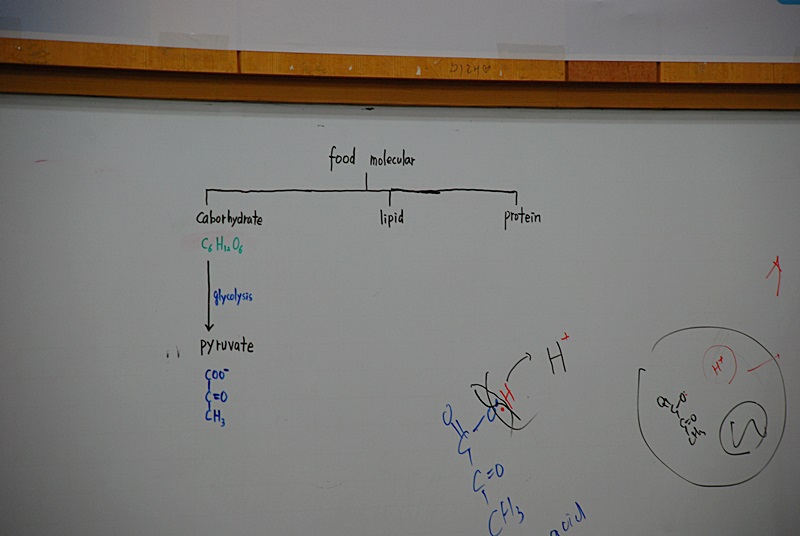 food molecular
Caborhydrate
lipid
protein
C₆H₁₂O₆
glycolysis
pyruvate
COO⁻
C=O
CH₃
H⁺
H
O
C
C=O
CH₃
acid
H⁺
C=O
CH₃